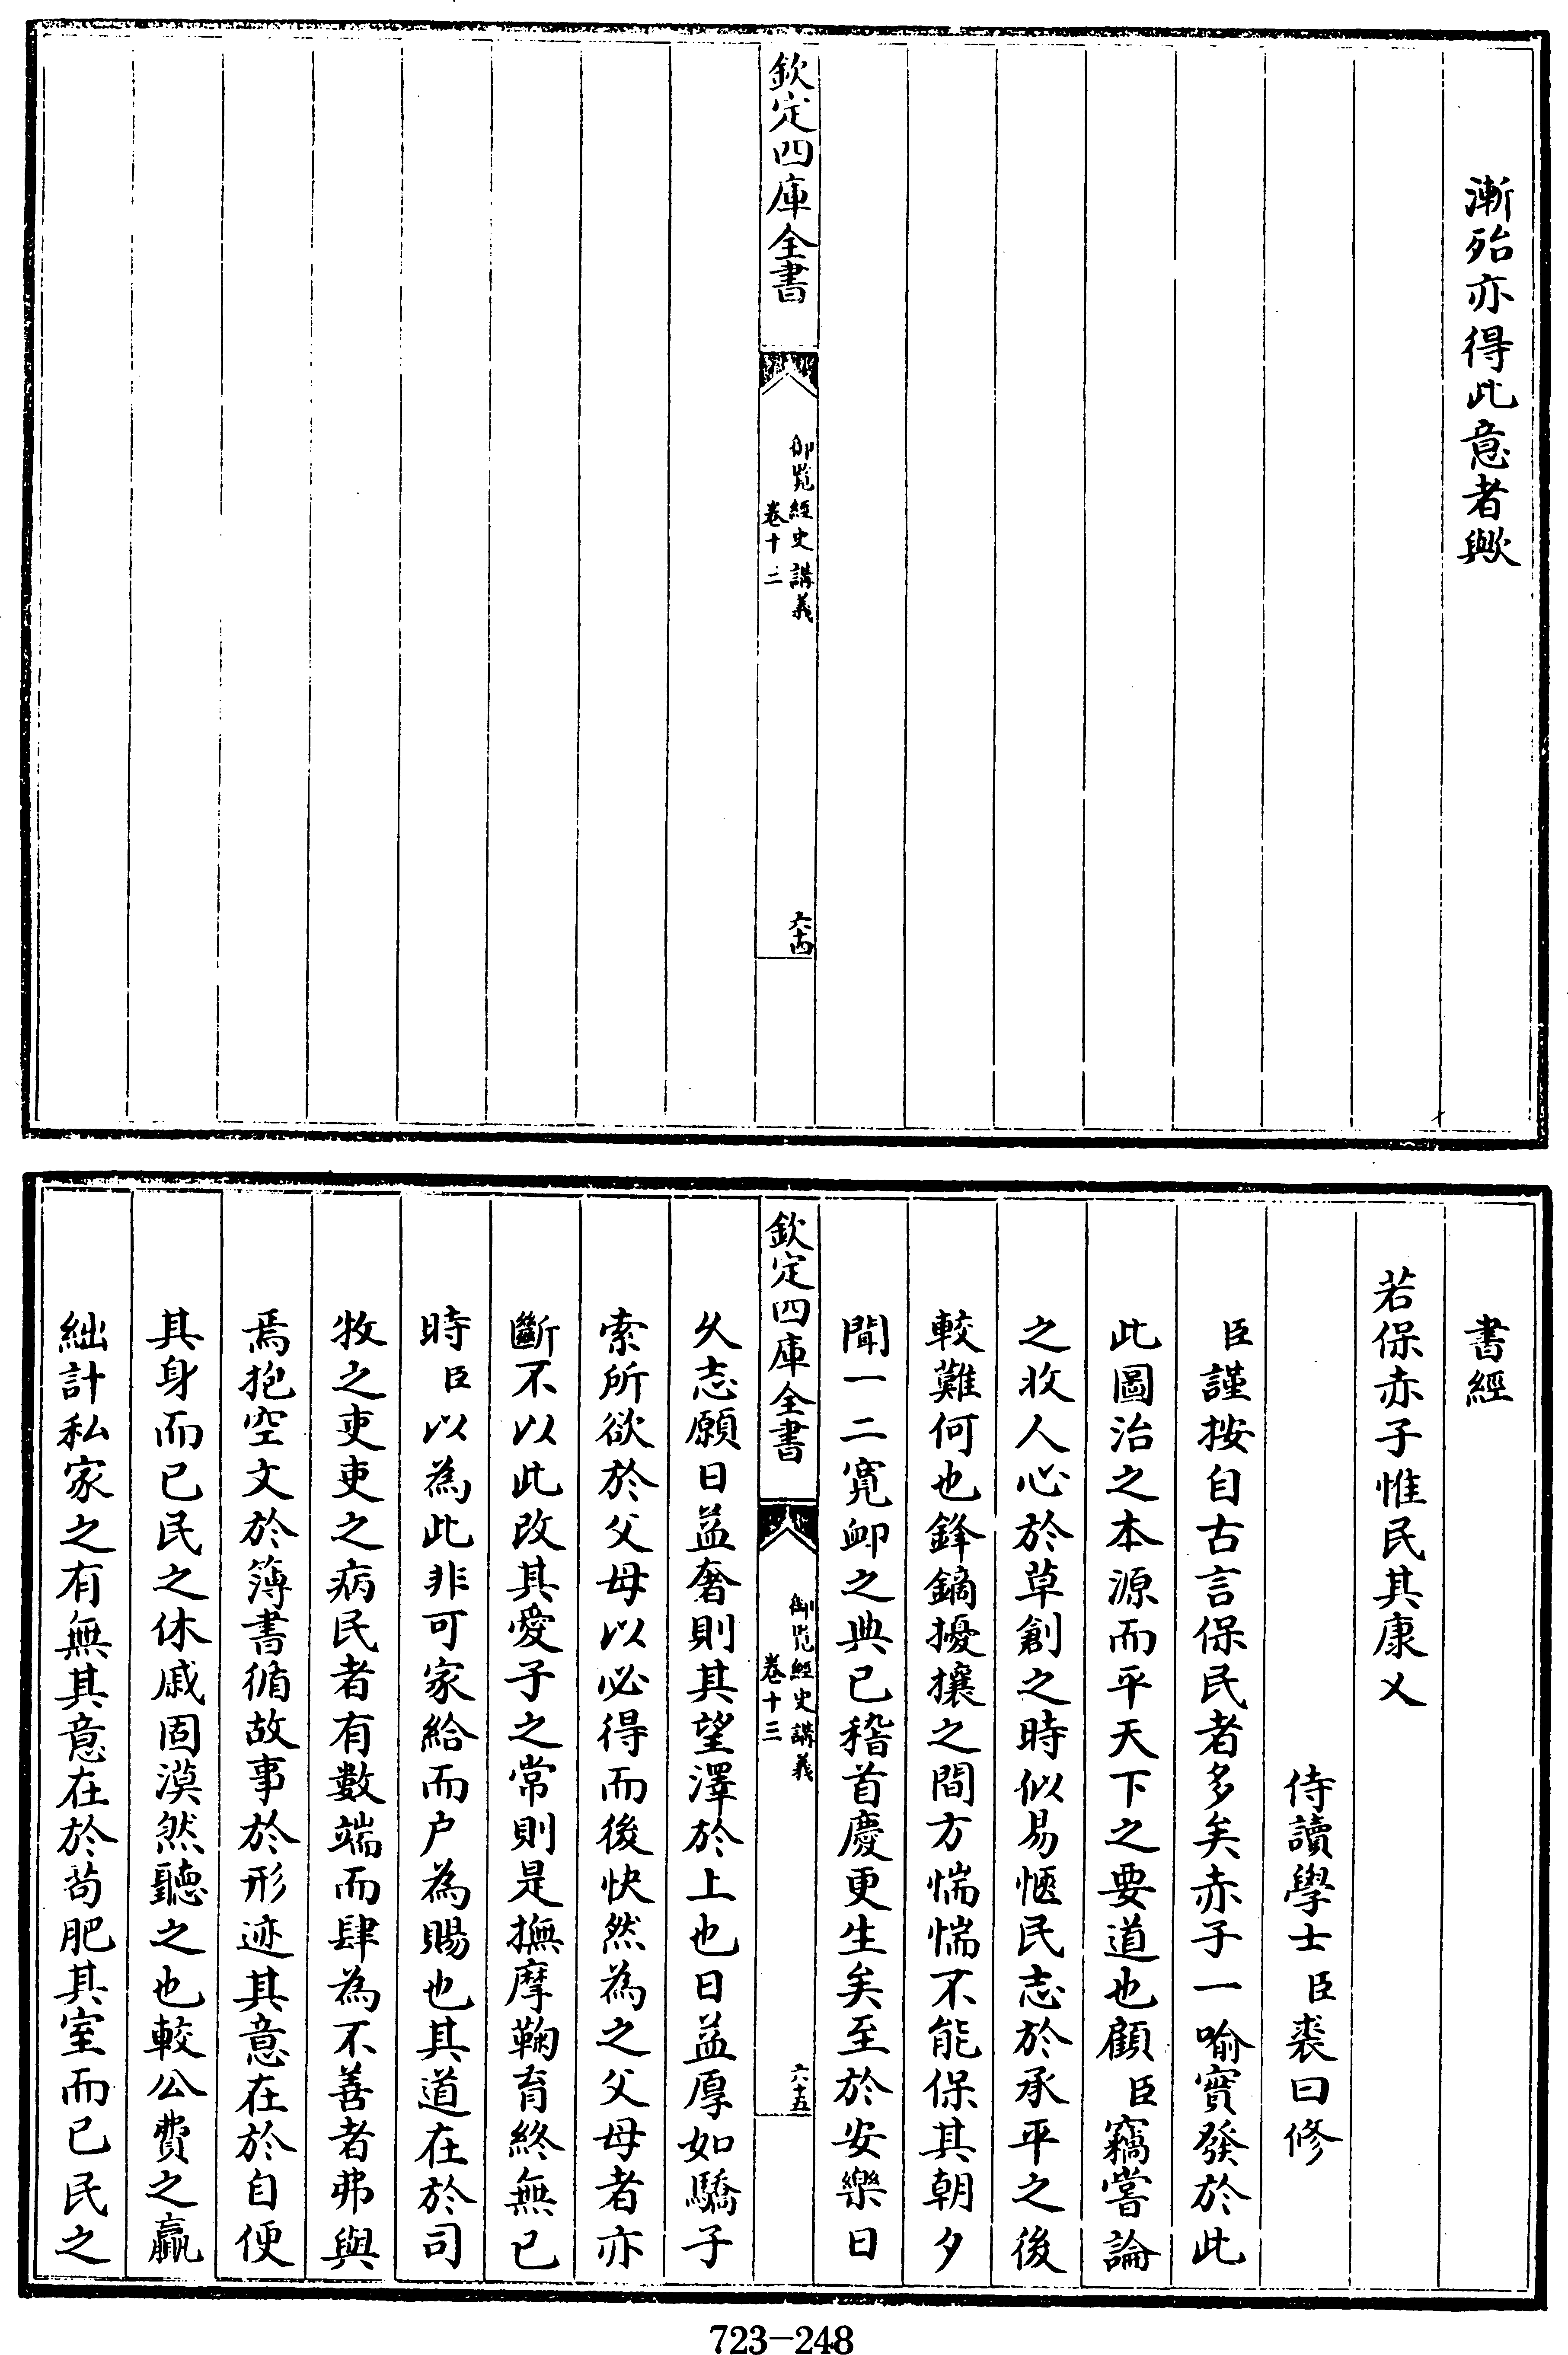 漸殆亦得此意者歟
欽定四庫全書
御覽經史講義
卷十二
六十四
書經
若保赤子惟民其康乂
侍讀學士臣裘曰修
臣謹按自古言保民者多矣赤子一喻實發於此
此圖治之本源而平天下之要道也顧臣竊嘗論
之收人心於草創之時似易愜民志於承平之後
較難何也鋒鏑擾攘之間方惴惴不能保其朝夕
聞一二寛卹之典已稽首慶更生矣至於安樂日
欽定四庫全書
御覽經史講義
卷十三
六十五
久志願日益奢則其望澤於上也日益厚如驕子
索所欲於父母以必得而後快然為之父母者亦
斷不以此改其愛子之常則是撫摩鞠育終無已
時臣以為此非可家給而户為賜也其道在於司
牧之吏吏之病民者有數端而肆為不善者弗與
焉抱空文於簿書循故事於形迹其意在於自便
其身而已民之休戚固漠然聽之也較公費之贏
絀計私家之有無其意在於茍肥其室而已民之
723-248